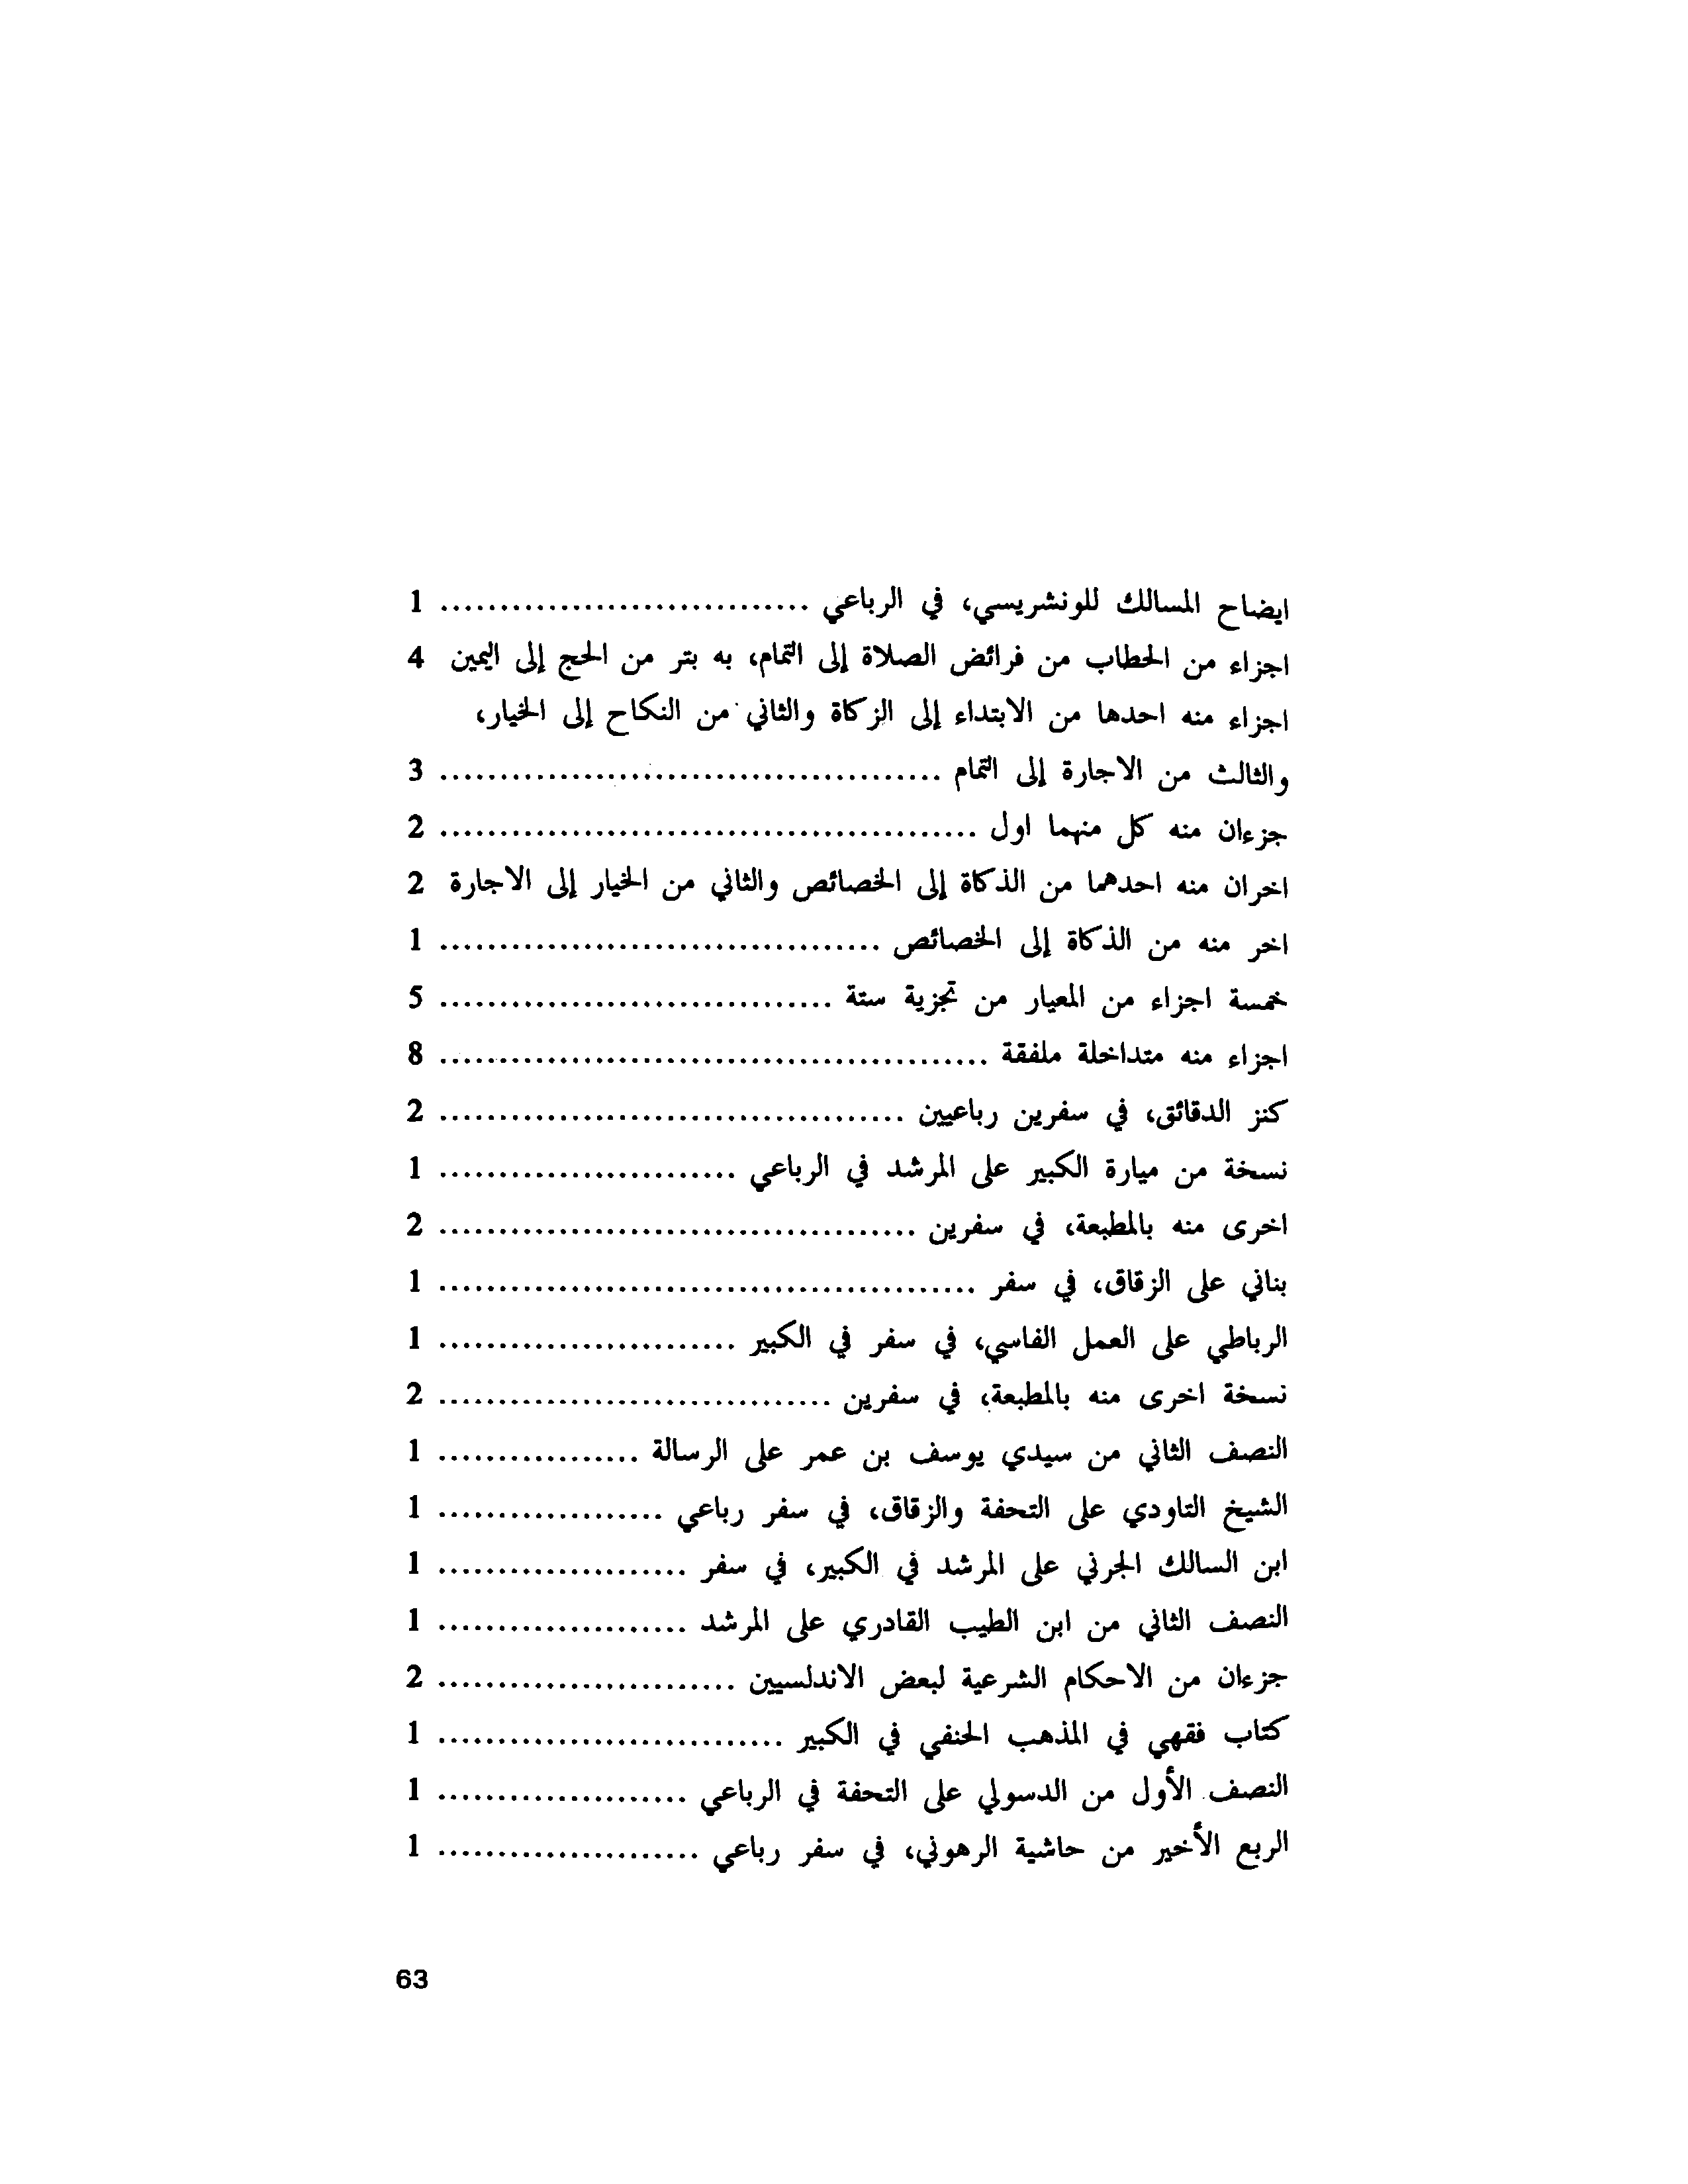 ايضاح المسالك للونشريسي، في الرباعي ............................... 1
اجزاء من الحطاب من فرائض الصلاة إلى التمام، به بتر من الحج إلى اليمين 4
اجزاء منه احدها من الابتداء إلى الزكاة والثاني من النكاح إلى الخيار،
والثالث من الاجارة إلى التمام .......................................... 3
جزءان منه كل منهما اول ............................................. 2
اخران منه احدهما من الذكاة إلى الخصائص والثاني من الخيار إلى الاجارة 2
اخر منه من الذكاة إلى الخصائص ..................................... 1
خمسة اجزاء من المعيار من تجزية ستة ................................. 5
اجزاء منه متداخلة ملفقة .............................................. 8
كنز الدقائق، في سفرين رباعيين ....................................... 2
نسخة من ميارة الكبير على المرشد في الرباعي ......................... 1
اخرى منه بالمطبعة، في سفرين ........................................ 2
بناني على الزقاق، في سفر ............................................. 1
الرباطي على العمل الفاسي، في سفر في الكبير ......................... 1
نسخة اخرى منه بالمطبعة، في سفرين ................................. 2
النصف الثاني من سيدي يوسف بن عمر على الرسالة ................. 1
الشيخ التاودي على التحفة والزقاق، في سفر رباعي ................... 1
ابن السالك الجرني على المرشد في الكبير، في سفر ..................... 1
النصف الثاني من ابن الطيب القادري على المرشد ..................... 1
جزءان من الاحكام الشرعية لبعض الاندلسيين ......................... 2
كتاب فقهي في المذهب الحنفي في الكبير ............................. 1
النصف الأول من الدسولي على التحفة في الرباعي ..................... 1
الربع الأخير من حاشية الرهوني، في سفر رباعي ...................... 1
63